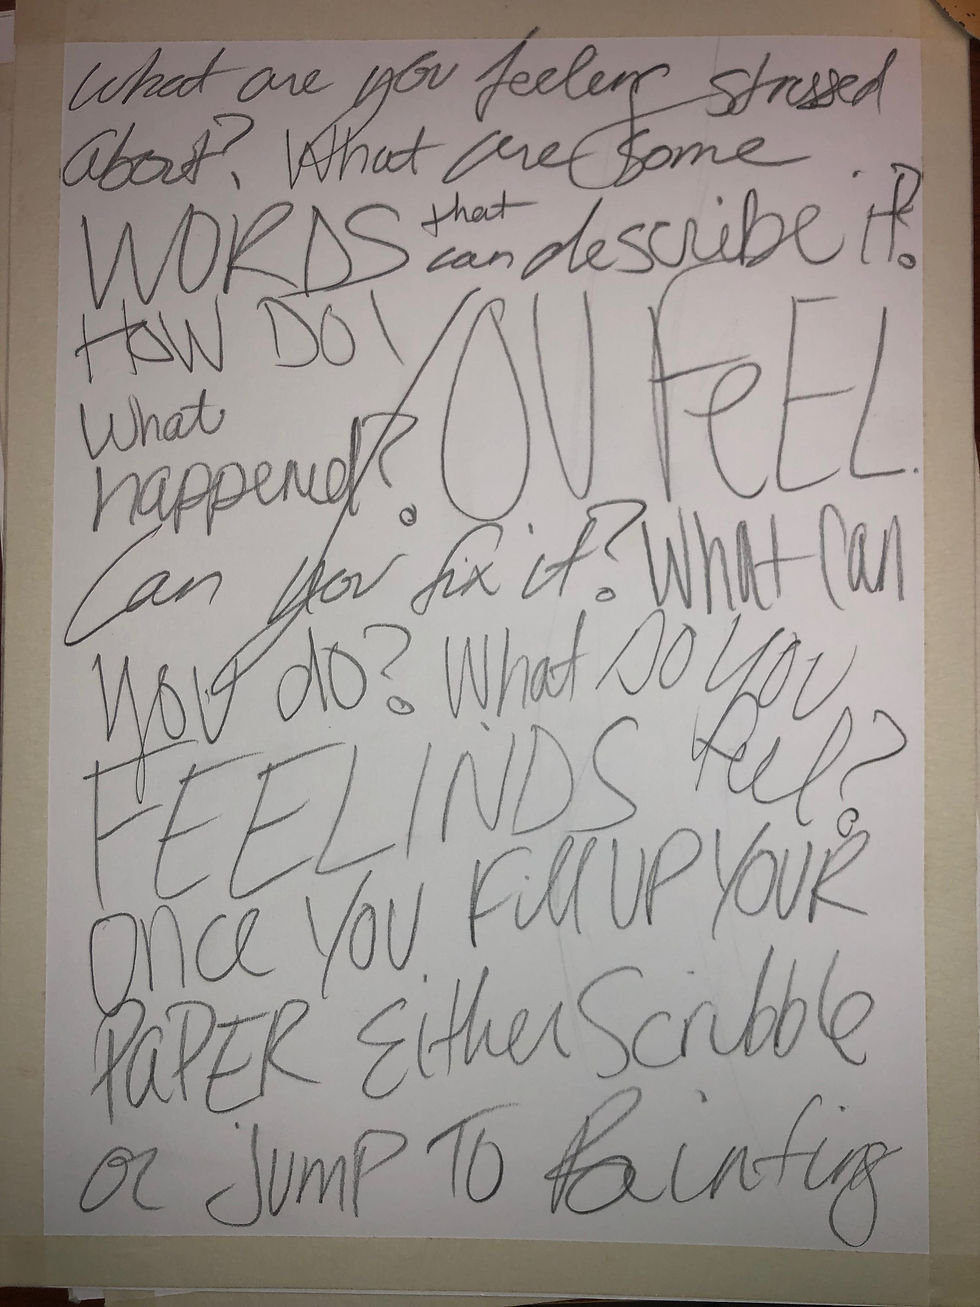 What are you feeling stressed
about? What are some
WORDS that can describe it?
HOW DO YOU FeEL.
What
happened?
Can you fix it? What can
you do? What DO YOU
FEELINDS feel?
Once YOU Fill UP YOUR
PaPER Either Scribble
or jUMP TO Painting